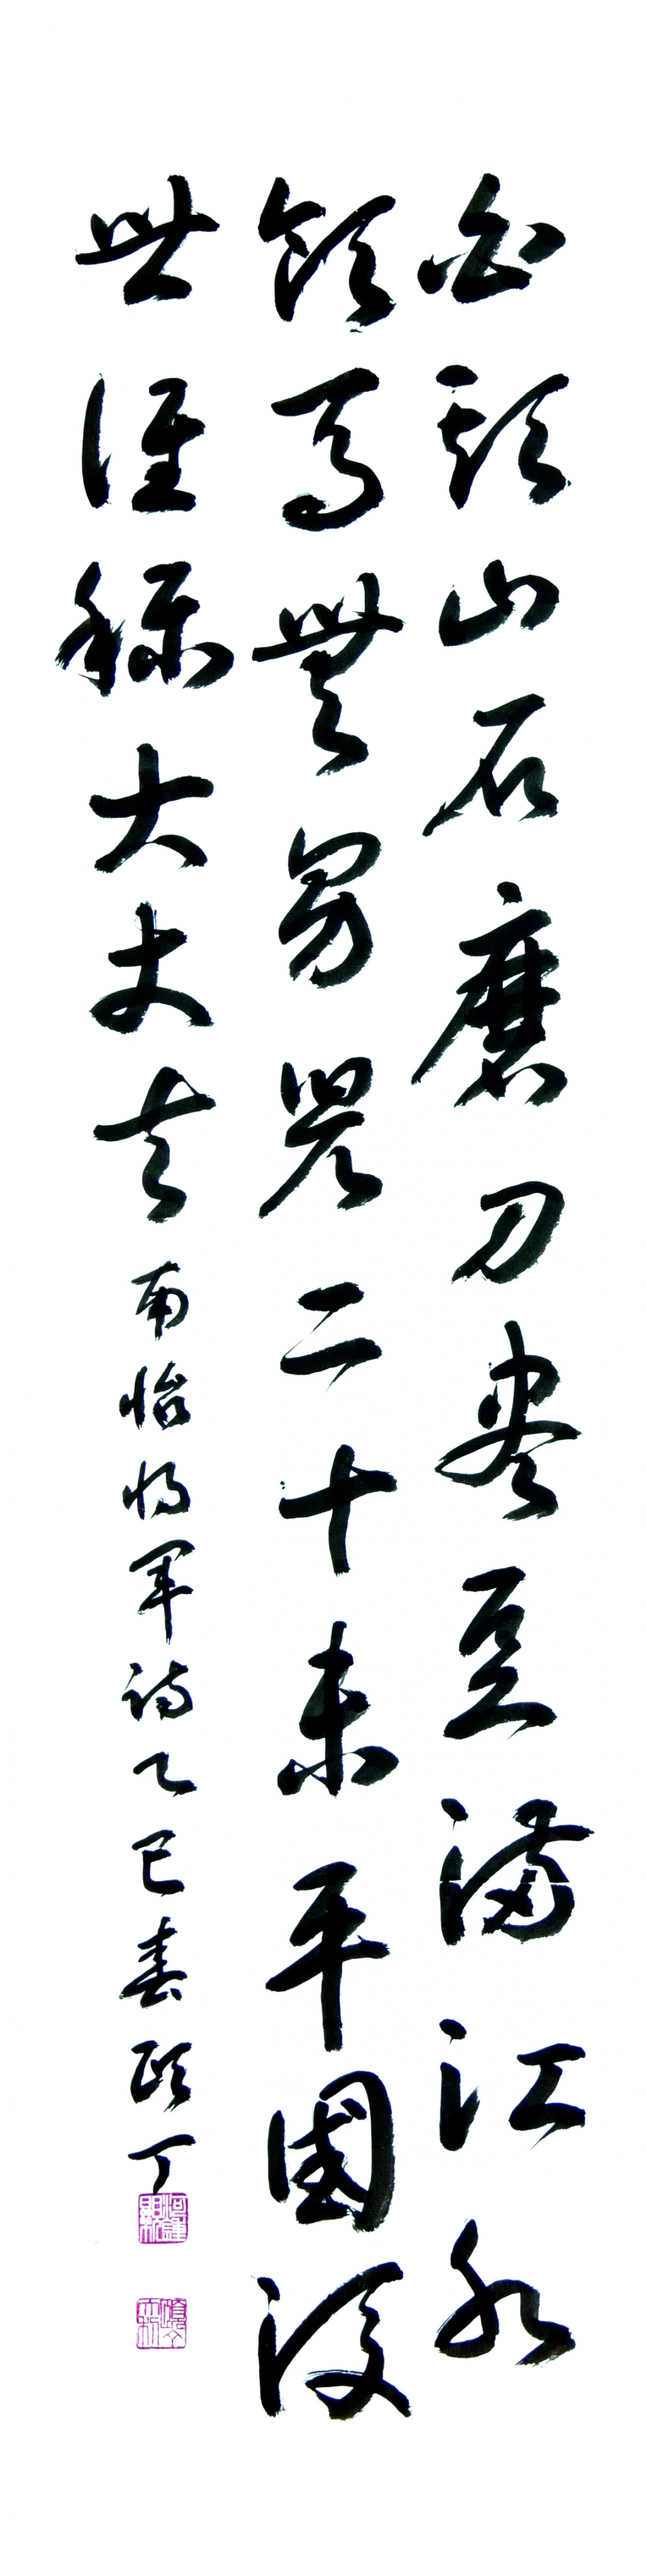 白頭山石磨刀盡豆滿江水
飮馬無男兒二十未平國後
世誰稱大丈夫 南怡將軍詩乙巳春 丁